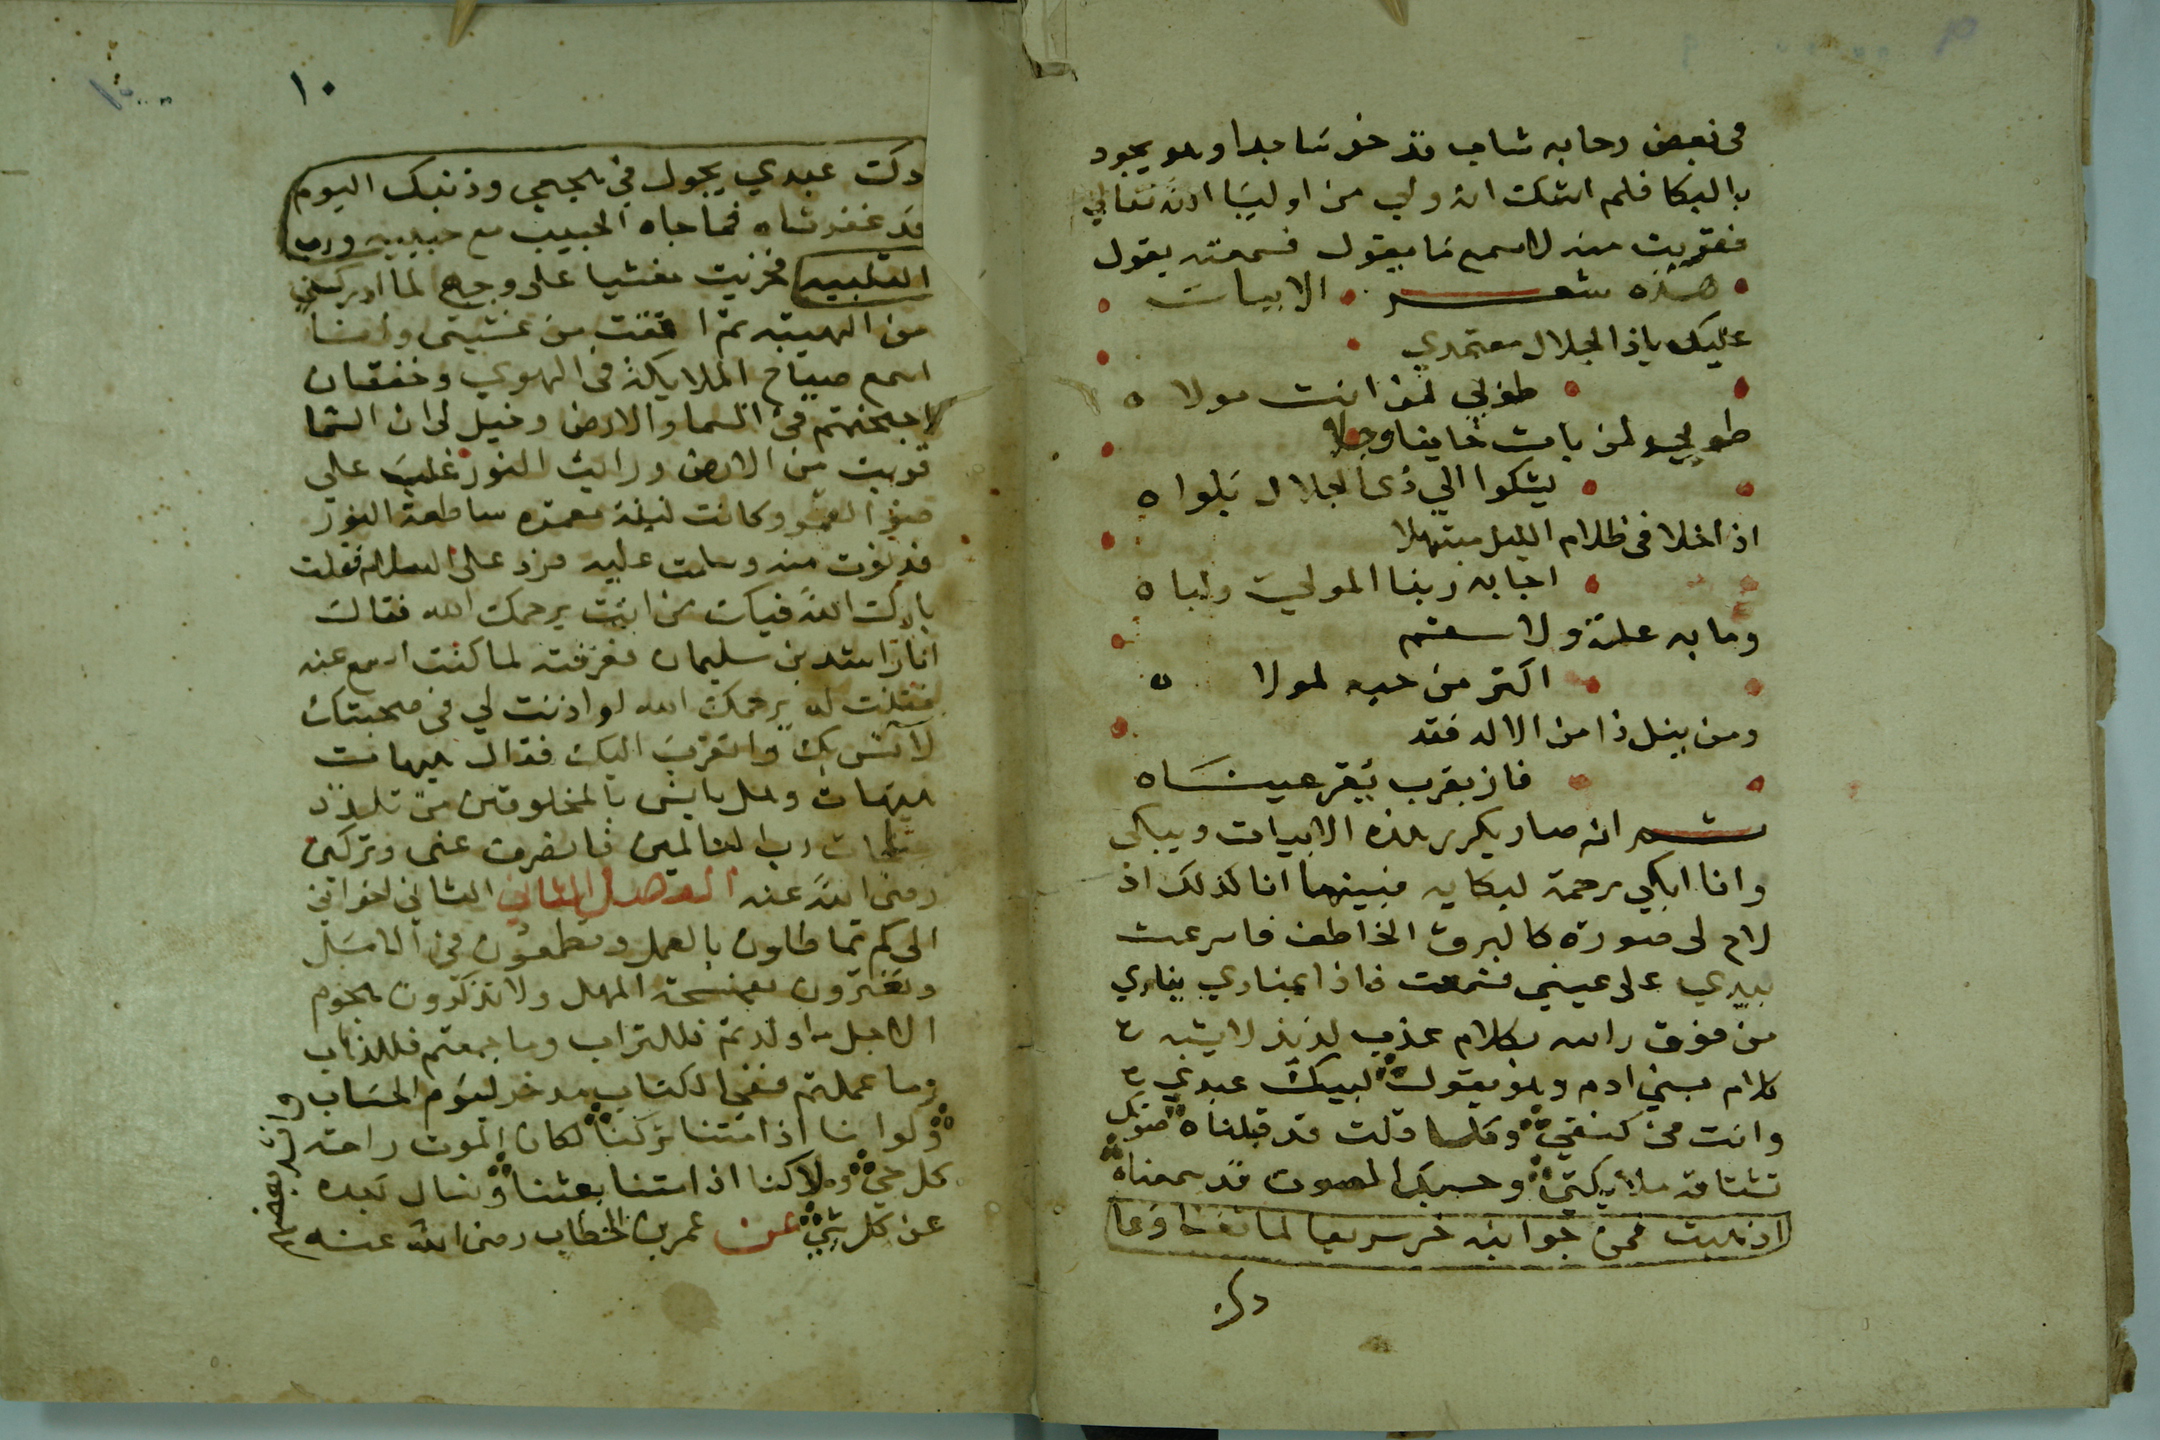 في بعض رحابه شاب قد خر ساجدا وهو يجود
بالبكا فلم اشك انه ولي من اوليا الله تعالي
فقربت منه لاسمع ما يقول فسمعته يقول
هذه شعر الابيات
عليك ياذا الجلال معتمدي
طوبي لمن انت مولاه
طوبي لمن بات خايفا وجلا
يشكوا الي ذي الجلال بلواه
اذا خلا في ظلام الليل مبتهلا
اجابه ربنا المولي ولباه
وما به علة ولا سقم
اكثر من حبه لمولاه
ومن ينل ذا من الاله فقد
فاز بقرب تقر عيناه
ثم انه صار يكرر هذه الابيات ويبكي
وانا ابكي رحمة لبكايه فبينما انا كذلك اذ
لاح لي صورة كالبرق الخاطف فاسرعت
بيدي علي عيني فسمعت فاذا بمنادي ينادي
من فوق راسه بكلام عذب لذيذ لا يشبه
كلام بني ادم وهو يقول لبيك عبدي
وانت في كنفي وكلما قلت قد قبلناه صوتك
تشتاقه ملايكتي وحسبك الصوت قد سمعناه
ان هبت في جوانبه خر سريعا لما تغشاه دعا
دعا
١٠
ك عبدي يجول في حجبي وذنبك اليوم
قد غفرناه فناجاه الحبيب مع حبيبه ورب
القلبيه فخريت مغشيا علي وجهي لما ادركني
من الهيبة ثم افقت من غشيتي وانا
اسمع صياح الملايكة في الهوي وخفقان
اجنحتهم في السما والارض وخيل لي ان السما
قربت من الارض ورايت النور غلب علي
ضو القمر وكانت ليلة مقمره ساطعة النور
فدنوت منه وسلمت عليه فرد علي السلام فقلت
بارك الله فيك من انت يرحمك الله فقال
انا راشد بن سليمان فعرفته لما كنت اسمع عنه
فقلت له يرحمك الله لو اذنت لي في صحبتك
لآنس بك واتقرب اليك فقال هيهات
هيهات وهل يانس بالمخلوقين من تلذذ
بمناجات رب العالمين فانصرف عني وتركني
رضي الله عنه الفصل الثاني الثاني اخواني
الي كم تماطلون بالعمل وتطمعون في الامل
وتغترون بفسحة المهل ولا تذكرون هجوم
الاجل ما ولدتم فللتراب وما جمعتم فللذهاب
وما عملتم ففي الكتاب مدخر ليوم الحساب
ولو انا اذا متنا تركنا لكان الموت راحة
كل حي ولاكنا اذا متنا بعثنا ونسال بعده
عن كل شي عن عمر بن الخطاب رضي الله عنه